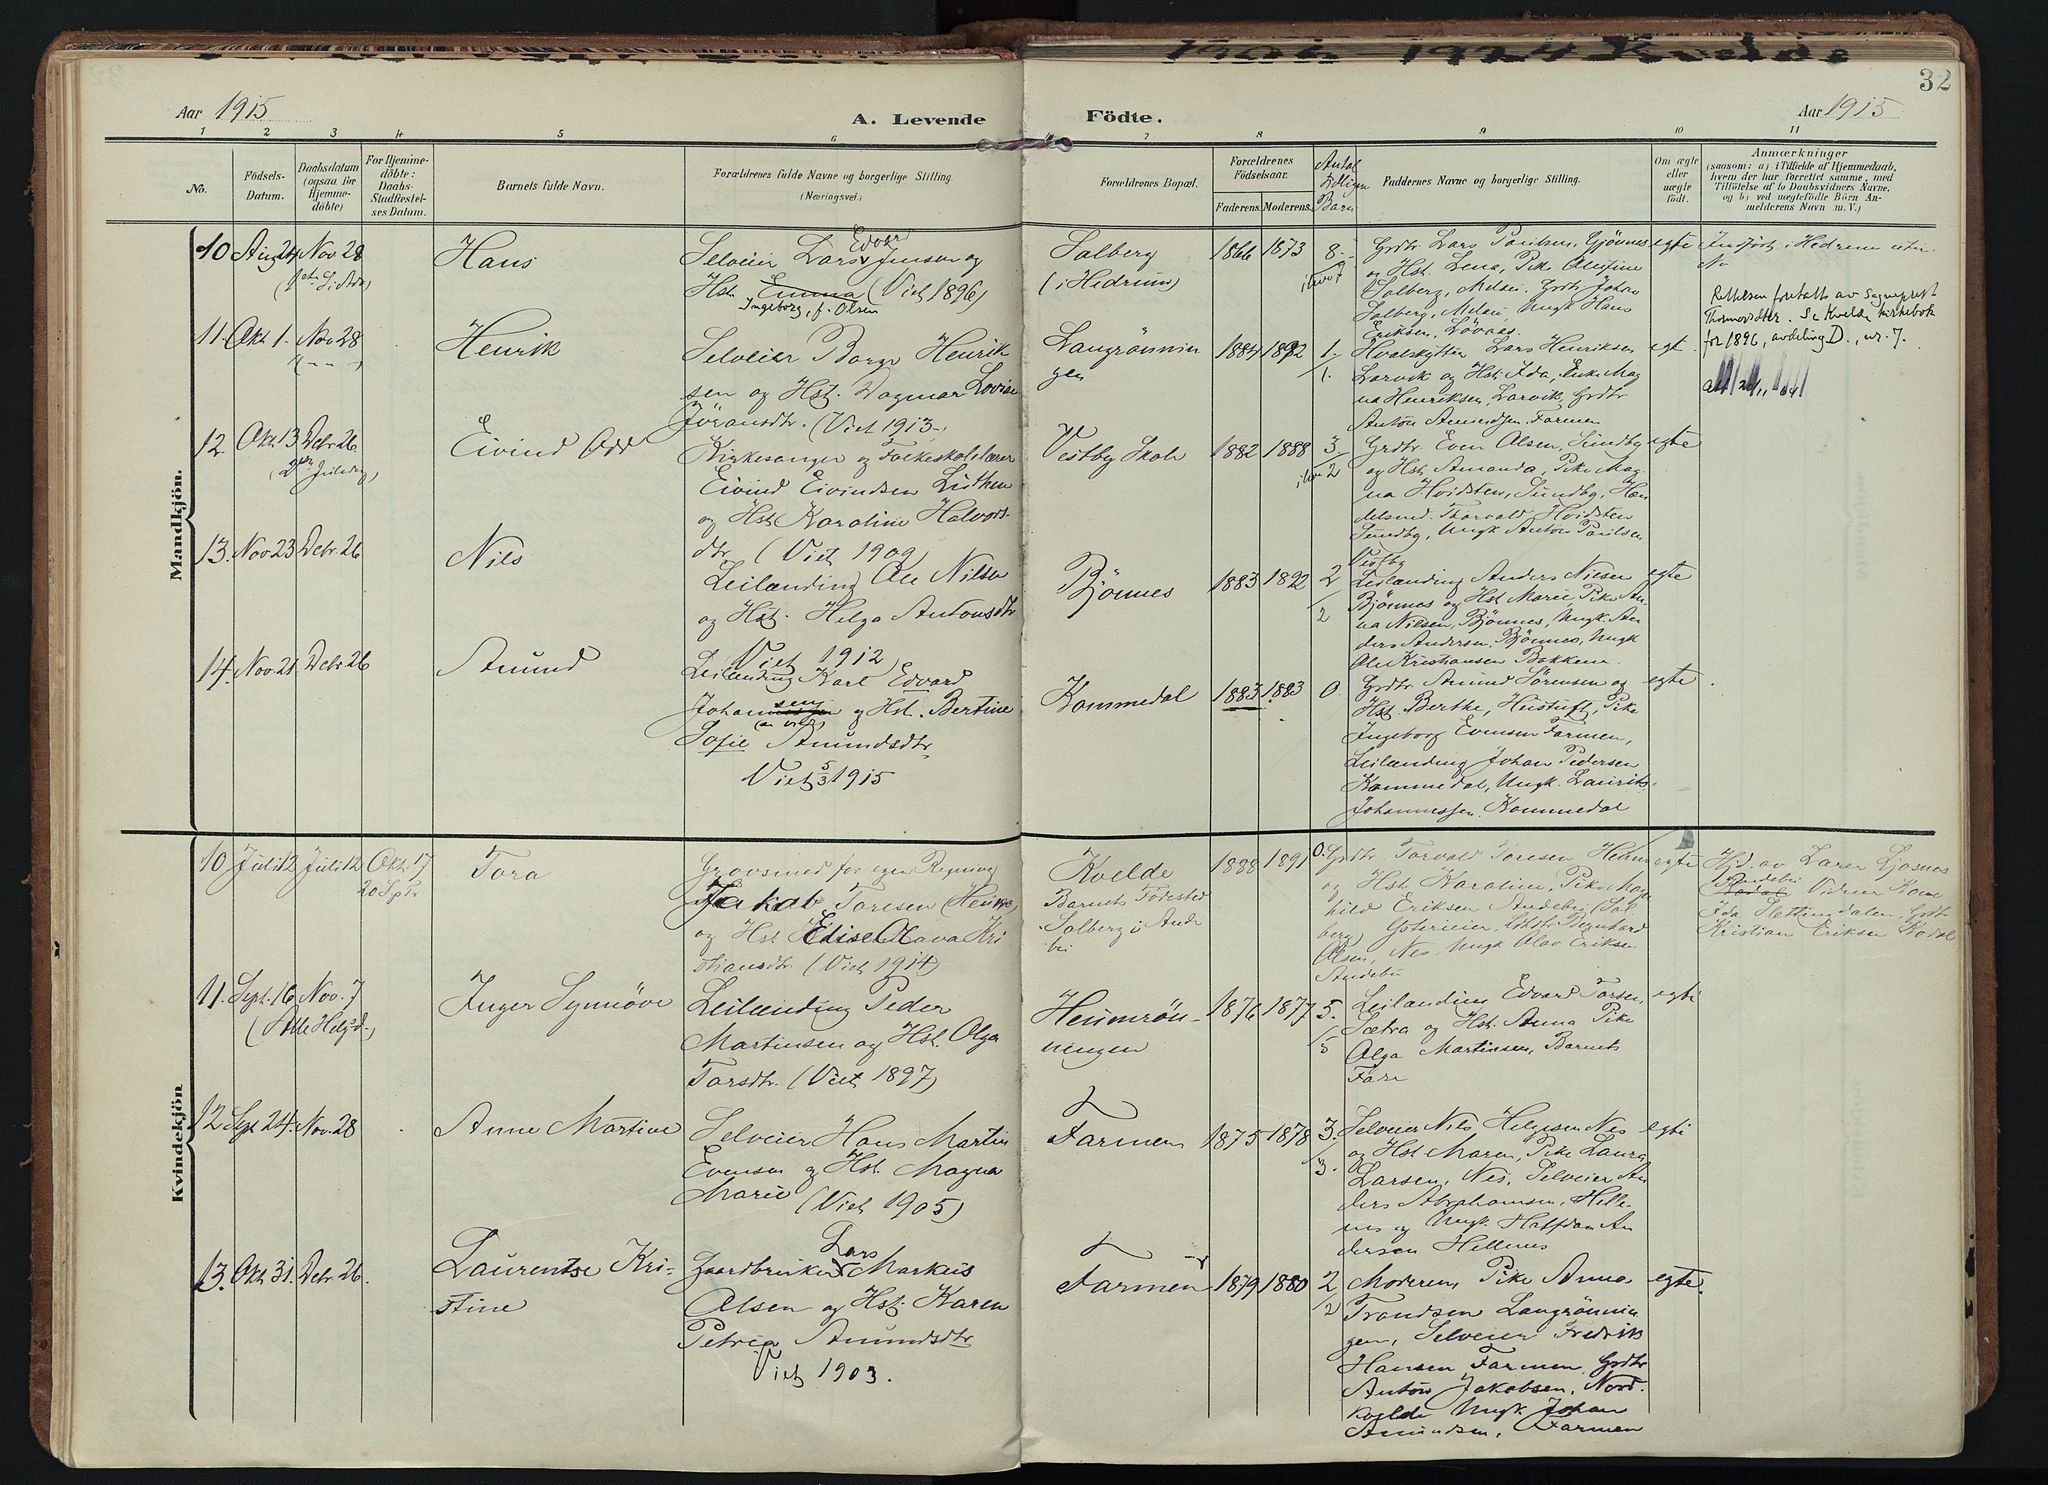 1906 1924 Kvelde
32
Aar 1915
A. Levende Födte.
Aar 1915
1 2 3 4 5 6 7 8 9 10 11
No.
Födsels-
Datum.
Daabsdatum
(ogsaa for
Hjemme-
döbte)
For Hjemme-
döbte:
Daabs-
Stadfæstel-
ses Datum.
Barnets fulde Navn.
Forældrenes fulde Navne og borgerlige Stilling.
(Næringsvei.)
Forældrenes Bopæl.
Forældrenes
Födselsaar.
Faderens. Moderens.
Antal
Barn
Faddernes Navne og borgerlige Stilling.
Om ægte
eller
uægte
født.
Anmærkninger
(saasom: a) i Tilfælde af Hjemmedaab,
hvem der har forrettet samme, med
Tilföielse af to Daabsvidners Navne,
og b) ved uægtefödte Börn An-
melderens Navn m. V.)
Mandkjön.
10 Aug 24 Nov 28
Hans
Edvard
Selveier Lars Jensen og
Hst. Emma (Viet 1896)
Ingeborg, f. Olsen
Solberg
(i Hedrum)
1866 1873 8
Grdbr. Lars Paulsen, Gjönnes
og Hst. Lena, Pike Alestine
Solberg, Melau, Grdbr Johan
Solberg, Melau, Ungk Hans
Eriksen, Lövaas.
egte
Indført i Hedrum uten
No
Rettelsen foretatt av Sogneprest
Thormodsæter. Se Kvelde kirkebok
for 1896, avdeling D., nr. 7.
11. Okt 1. Nov 28
Henrik
Selveier Borge Henrik
sen og Hst. Dagmar Lovise
Jöransdtr. (Viet 1913)
Langrönnin
gen
1884 1892 1.
1.
Hvalskytter Lars Henriksen
Larvik og Hst. Ida, Pike Mag
na Henriksen, Larvik, Grdbr
Anton Amundsen, Farmen
egte
12. Okt 13 Debr 26
(2den Juledag)
Eivind Odd
Kirkesanger og Folkeskolelærer
Eivind Eivindsen Luthen
og Hst. Karoline Halvors-
dtr. (Viet 1909)
Vestby Skole
1882 1888 3
2
Grdbr. Even Olsen, Sundby
og Hst. Amanda, Pike Mag
na Hvidsten, Sundby, Han
delsmd. Thorvald Hvidsten
Sundby, Ungk. Anton Paulsen
Vestby
egte
13. Nov 23 Debr 26
Nils
Leilænding Ole Nilsen
og Hst. Helga Antonsdtr
Viet 1912
Bjönnes
1883 1892 2
2
Leilænding Anders Nilsen
Bjönnes og Hst Marie, Pike An
na Nilsen, Bjönnes, Ungk. An
ders Andersen, Bjönnes, Ungk
Ole Kristiansen Bakken
egte
14. Nov 21. Debr 26
Amund
Leilænding Karl Edvard
Johannessen og Hst. Bertine
Sofie Amundsdtr
Viet 5/3 1915
Kommedal
1883 1883 0.
Grdbr. Amund Sörensen og
Hst. Berthe, Hustuft, Pike
Ingeborg Evensen Farmen,
Leilænding Johan Pedersen
Kommedal, Ungk. Laurits
Johannessen Kommedal
egte
Kvindekjön
10 Juli 12 Juli 12 Okt 17
20 Sptr
Tora
Grovsmed for egen Regning
Jakob Toresen
og Hst. Elise Olava Kri
stiansdtr. (Viet 1914)
Kvelde
Barnets Födested
Solberg i Ande
bu
1888 1891 0.
Grdbr. Torvald Toresen
og Hst Karoline, Pike Magn
hild Eriksen Andebu (Sol
berg) Bernhard
Olsen, Nes, Ungk Olav Eriksen
Andebu
egte
Hjd. av Lærer Ljosnæs
Andebu
Kodal Vidner Kone
Ida Slettingdalen, Grdbr
Kristian Eriksen Kodal
11. Sept. 16 Nov. 7
(Alle Helgd.)
Inger Synnöve
Leilænding Peder
Martinsen og Hst. Olga
Torsdtr. (Viet 1897)
Heumrön-
ningen
1876 1877 5.
5
Leilænding Edvard Torsen,
Sætra og Hst. Anna Pike
Olga Martinsen, Barnets
Fare
egte
12 Sept 24. Nov. 28
Anne Martine
Selveier Hans Martin
Evensen og Hst. Magna
Marie (Viet 1905)
Farmen
1875 1878 3.
3.
Selveier Nils Helgesen Nes
og Hst Maren, Pike Laura
Larsen, Nes, Selveier An
ders Abrahamsen, Helle-
nes og Ungk. Halfdan An
dersen Hellenes
egte
13. Okt 31. Debr 26.
Laurentse Kri-
stine
Lars
Gaardbruker Markus
Olsen og Hst. Karen
Petrea Amundsdtr
Viet 1903.
Farmen
1879 1880 2
2
Moderen, Pike Anna
Trondsen Langrönnin
gen, Selveier Fredrik
Hansen Farmen, Grdbr
Anton Jakobsen, Nord-
kvelde Ungk. Johan
Amundsen, Farmen
egte.